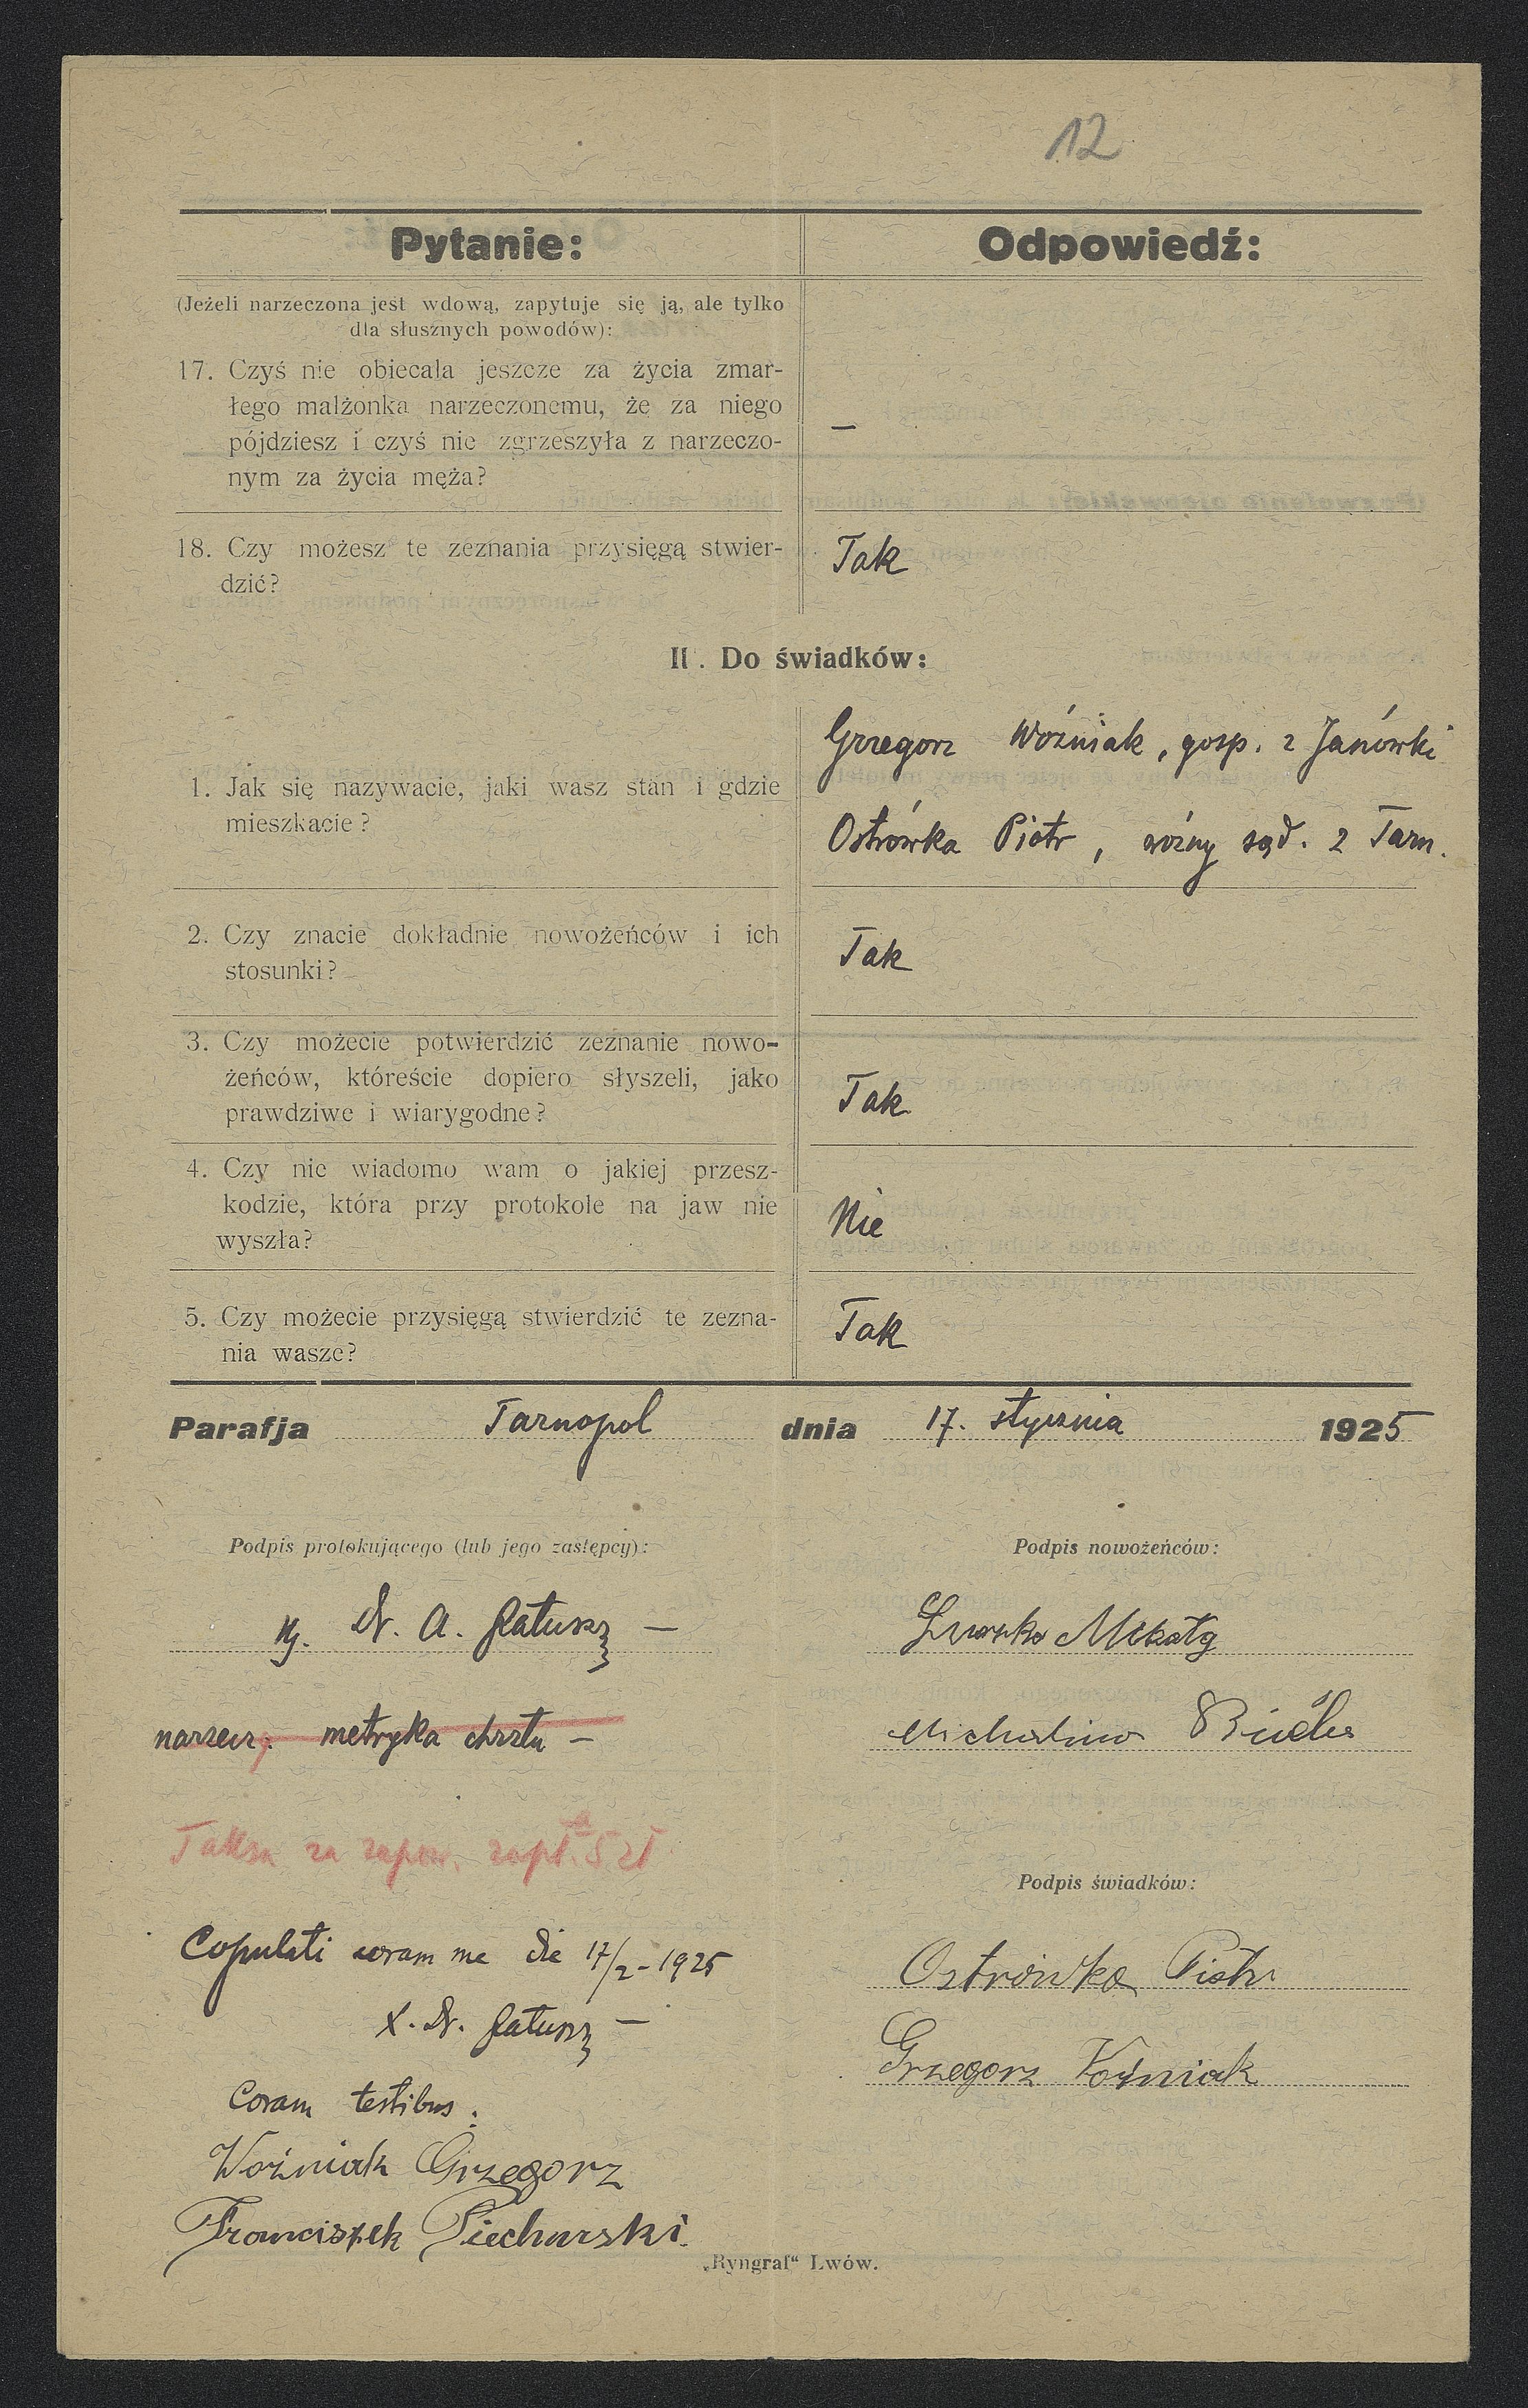 12
Pytanie:
Odpowiedź:
(Jeżeli narzeczona jest wdową, zapytuje się ją, ale tylko
dla słusznych powodów):
17. Czyś nie obiecała jeszcze za życia zmar-
łego małżonka narzeczonemu, że za niego
pójdziesz i czyś nie zgrzeszyła z narzeczo-
nym za życia męża?
—
18. Czy możesz te zeznania przysięgą stwier-
dzić?
Tak
II. Do świadków:
1. Jak się nazywacie, jaki wasz stan i gdzie
mieszkacie?
Grzegorz Woźniak, gosp. z Janówki
Ostrówka Piotr, woźny sąd. z Tarn.
2. Czy znacie dokładnie nowożeńców i ich
stosunki?
Tak
3. Czy możecie potwierdzić zeznanie nowo-
żeńców, któreście dopiero słyszeli, jako
prawdziwe i wiarygodne?
Tak
4. Czy nie wiadomo wam o jakiej przesz-
kodzie, która przy protokole na jaw nie
wyszła?
Nie
5. Czy możecie przysięgą stwierdzić te zezna-
nia wasze?
Tak
Parafja Tarnopol dnia 17. stycznia 1925
Podpis protokującego (lub jego zastępcy):
Dr. A.
narzecz. metryka chrztu —
Taksa za zapow. zapł. 5 zł
Copulati coram me die 17/2 - 1925
X. Dr.
Coram testibus:
Woźniak Grzegorz
Franciszek Piecharski.
Podpis nowożeńców:
Michalina
Podpis świadków:
Ostrówka Piotr
Grzegorz Woźniak
„Ryngraf“ Lwów.